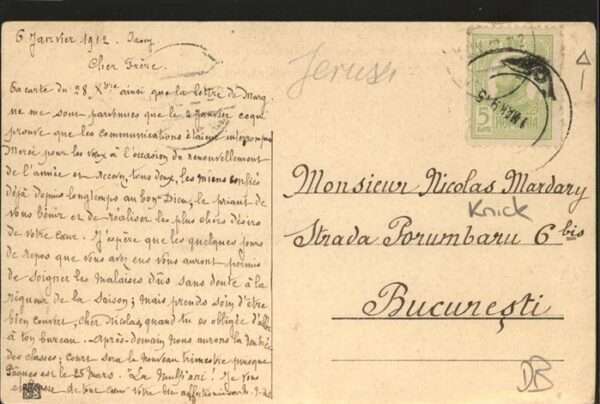 6 Janvier 1912. Iassy
Cher Frère,
Ta carte du 28 Xbre ainsi que la lettre de Marg.
ne me sont parvenues que le 2 janvier ce qui
prouve que les communications étaient interrompues
Merci pour tes vœux à l'occasion du renouvellement
de l'année et reçois, tous deux, les miens confiés
déjà depuis longtemps au bon Dieu, le priant de
vous bénir et de réaliser les plus chers désirs
de votre cœur. J'espère que les quelques jours
de repos que vous avez eus vous auront permis
de soigner les malaises dûs sans doute à la
rigueur de la Saison; mais prends soin d'être
bien couvert, cher Nicolas, quand tu es obligé d'aller
à ton bureau. Après-demain nous aurons la rentrée
des classes; court sera le nouveau trimestre puisque
Pâques est le 25 Mars. "La mulți ani! Je vous
de tout cœur votre
Jeruss
5
Monsieur Nicolas Mardary
Knick
Strada Porumbaru 6 bis
București
DB